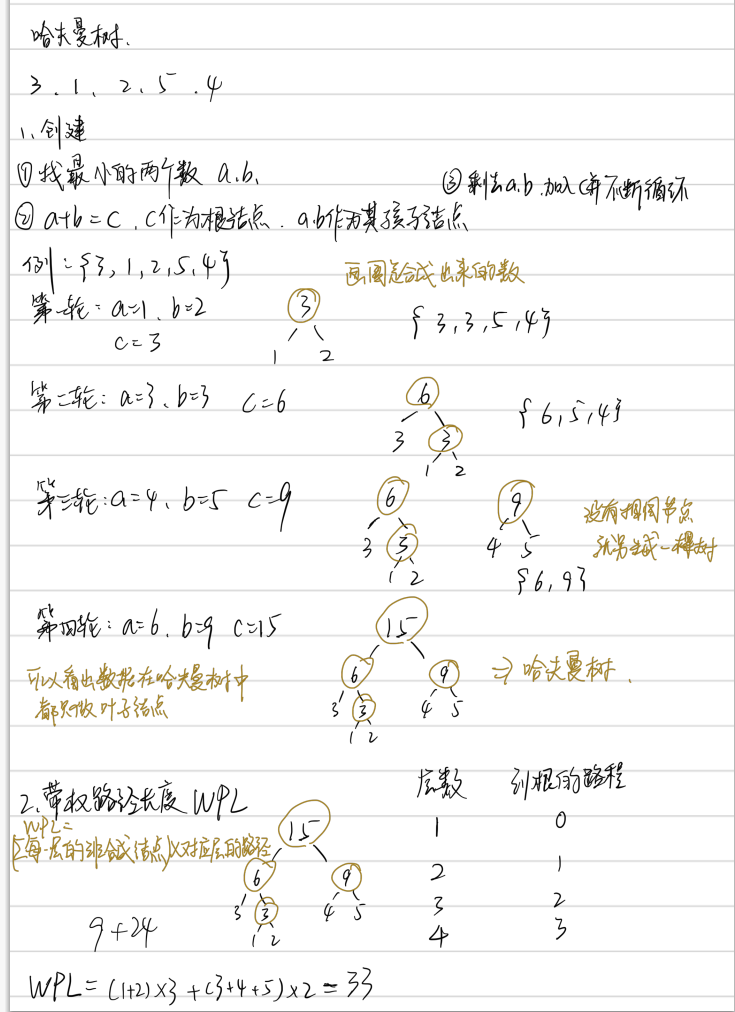 哈夫曼树.
3、1、2、5、4
1、创建
①找最小的两个数 a、b、
③剩去a.b.加入C并不断循环
② a+b=c,c作为根结点.a.b作为其孩子结点
例:{3,1,2,5,4}
画圈是合成出来的数
第一轮:a=1、b=2
c=3
3
1 2
{3,3,5,4}
第二轮:a=3、b=3 c=6
6
3 3
1 2
{6,5,4}
第三轮:a=4、b=5 c=9
6
3 3
1 2
9
4 5
{6,9}
没有相同节点
就另生成一棵树
第四轮:a=6、b=9 c=15
15
6 9
3 3 4 5
1 2
⇒哈夫曼树.
可以看出数据在哈夫曼树中
都只做叶子结点
2、带权路径长度WPL
WPL=
[Σ每一层的非合成结点]×对应层的路径
15
6 9
3 3 4 5
1 2
层数 到根的路程
1 0
2 1
3 2
4 3
9+24
WPL=(1+2)×3+(3+4+5)×2=33